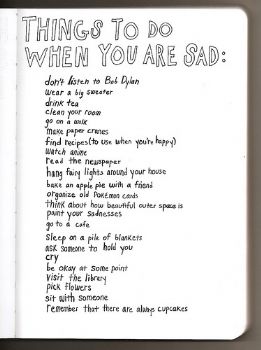 THINGS TO DO
WHEN YOU ARE SAD:
don't listen to Bob Dylan
Wear a big sweater
drink tea
clean your room
go on a walk
make paper cranes
find recipes (to use when you're happy)
Watch anime
read the newspaper
hang fairy lights around your house
bake an apple pie with a friend
organize old Pokemon cards
think about how beautiful outer space is
paint your sadnesses
go to a cafe
Sleep on a pile of blankets
ask someone to hold you
cry
be okay at some point
visit the library
pick flowers
sit with someone
remember that there are always cupcakes